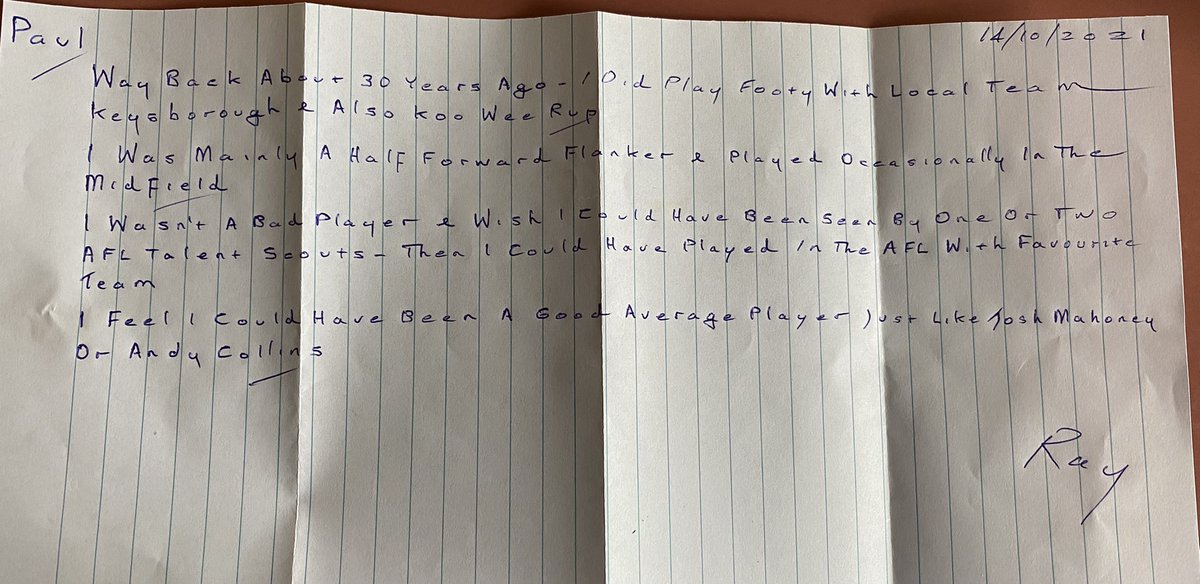 Paul
14/10/2021
Way Back About 30 Years Ago - I Did Play Footy With Local Team
Keysborough & Also Koo Wee Rup
I Was Mainly A Half Forward Flanker & Played Occasionally In The
Midfield
I Wasn't A Bad Player & Wish I Could Have Been Seen By One Or Two
AFL Talent Scouts - Then I Could Have Played In The AFL With Favourite
Team
I Feel I Could Have Been A Good Average Player Just Like Josh Mahoney
Or Andy Collins
Ray